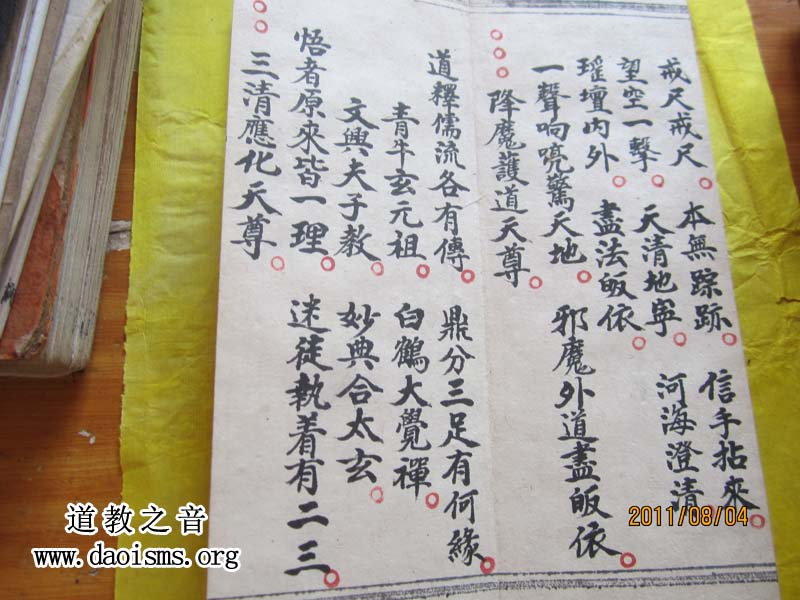 戒尺戒尺 本無踪跡 信手拈來
望空一擊 天清地寧 河海澄清
瑶壇內外 盡法皈依
一聲响喨驚天地 邪魔外道盡皈依
降魔護道天尊
道釋儒流各有傳 鼎分三足有何緣
青牛玄元祖 白鶴大覺禪
文興夫子教 妙典合太玄
悟者原來皆一理 迷徒執着有二三
三清應化天尊
道教之音
www.daoisms.org
2011/08/04